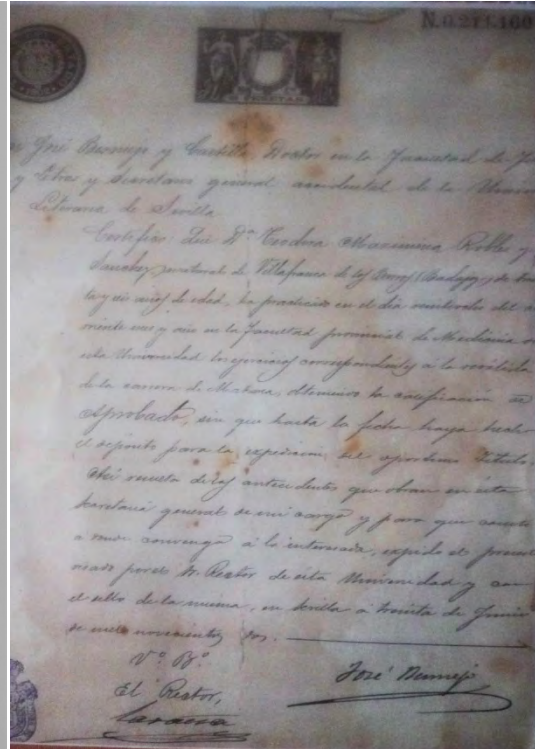 N.0.211.160
José Bermejo y Doctor en la Facultad de
y Letras y Secretario general accidental de la
Literaria de Sevilla
Certifico: Que Dª Teodora Maximina Robles y
Sanchez, natural de Villafranca de los Barros (Badajoz), de
años de edad, ha practicado en el dia veintidos del
mes y año en la Facultad provincial de Medicina
esta Universidad los ejercicios correspondientes á la reválida
de la carrera de Matrona, obteniendo la calificacion de
Aprobado, sin que hasta la fecha haya hecho
el depósito para la expedicion del oportuno Título
Así resulta de los antecedentes que obran en esta
Secretaria general de mi cargo y para que conste
á donde convenga á la interesada, expido el
visado por el Sr. Rector de esta Universidad y con
el sello de la misma, en Sevilla á treinta de Junio
de mil novecientos dos.
Vº Bº
El Rector,
José Bermejo